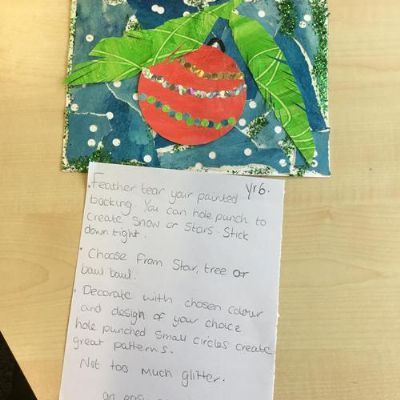 yr6.
• Feather tear your painted
backing. You can hole punch to
create Snow or Stars. Stick
down tight.
• Choose from Star, tree or
bawl bawl.
• Decorate with chosen colour
and design of your choice
hole punched small circles create
great patterns.
Not too much glitter.